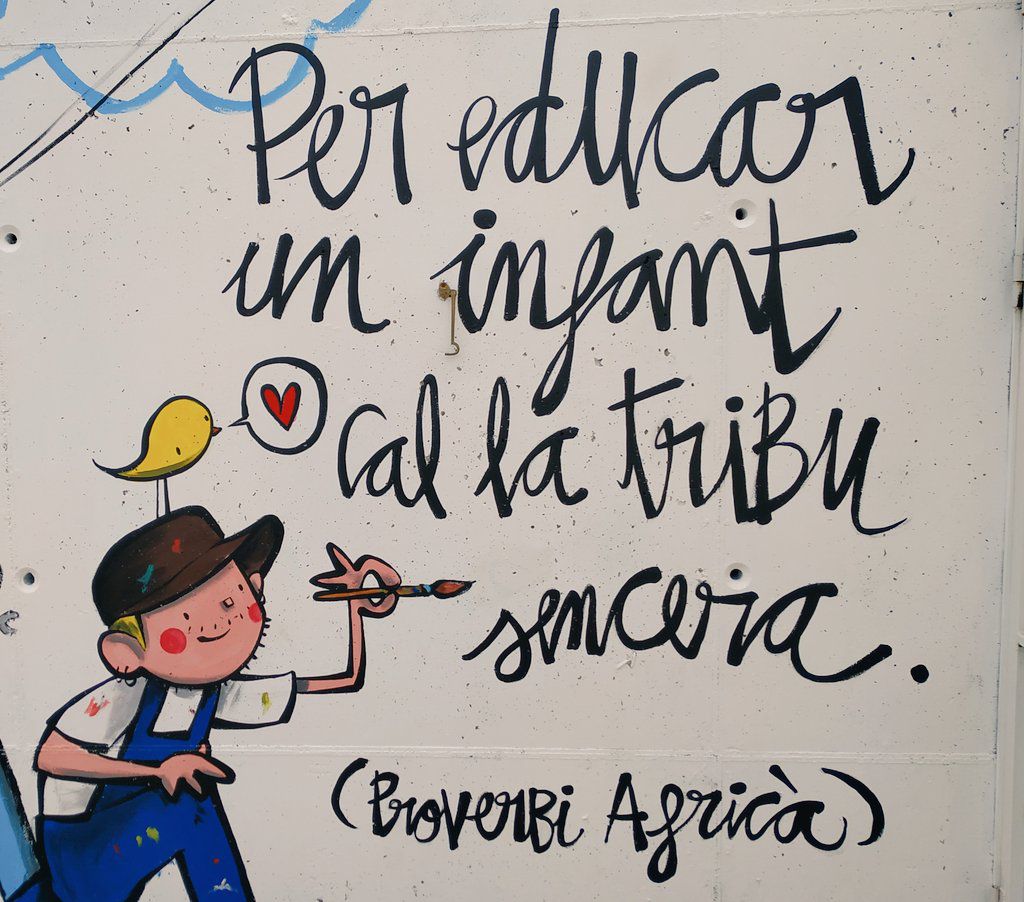 Per educar
un infant
cal la tribu
sencera.
(Proverbi Africà)